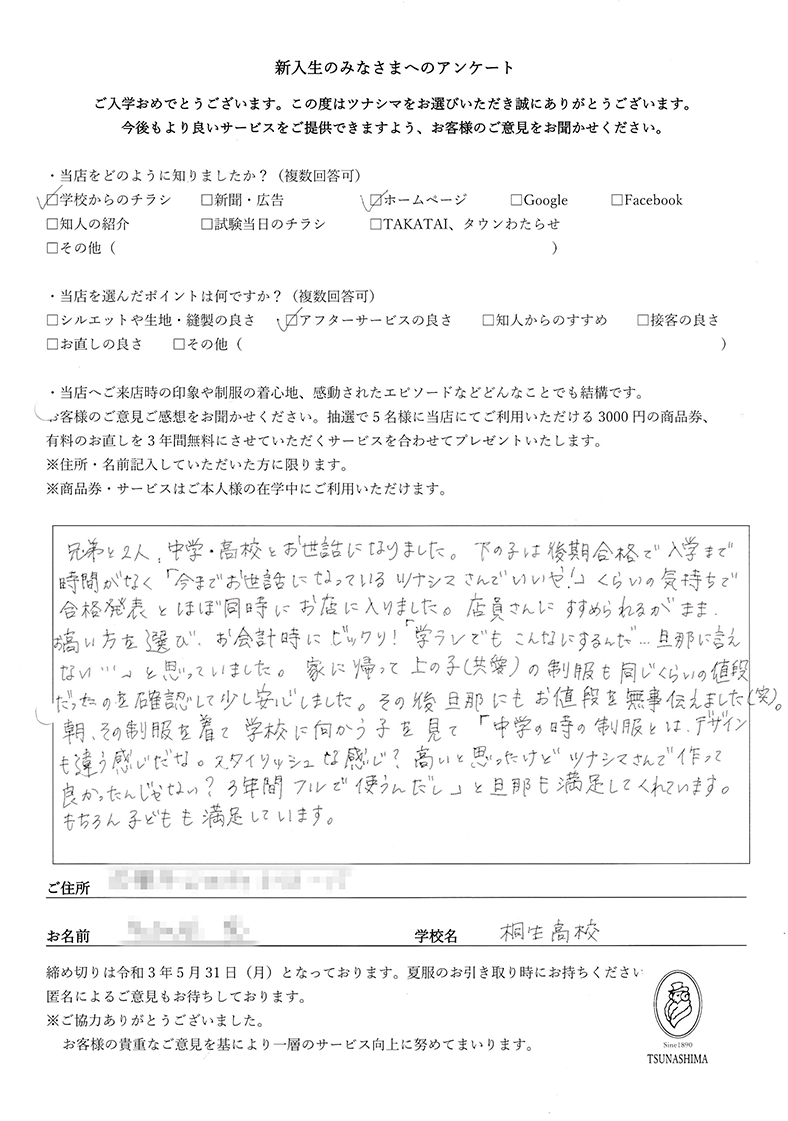 新入生のみなさまへのアンケート
ご入学おめでとうございます。この度はツナシマをお選びいただき誠にありがとうございます。
今後もより良いサービスをご提供できますよう、お客様のご意見をお聞かせください。
・当店をどのように知りましたか？（複数回答可）
☑学校からのチラシ □新聞・広告 ☑ホームページ □Google □Facebook
□知人の紹介 □試験当日のチラシ □TAKATAI、タウンわたらせ
□その他（ ）
・当店を選んだポイントは何ですか？（複数回答可）
□シルエットや生地・縫製の良さ ☑アフターサービスの良さ □知人からのすすめ □接客の良さ
□お直しの良さ □その他（ ）
・当店へご来店時の印象や制服の着心地、感動されたエピソードなどどんなことでも結構です。
お客様のご意見ご感想をお聞かせください。抽選で5名様に当店にてご利用いただける3000円の商品券、
有料のお直しを3年間無料にさせていただくサービスを合わせてプレゼントいたします。
※住所・名前記入していただいた方に限ります。
※商品券・サービスはご本人様の在学中にご利用いただけます。
兄弟と2人、中学・高校とお世話になりました。下の子は後期合格で入学まで
時間がなく「今までお世話になっているツナシマさんでいいや!」くらいの気持ちで
合格発表とほぼ同時にお店に入りました。店員さんにすすめられるがまま、
お高い方を選び、お会計時にビックリ!「学ランでもこんなにするんだ…旦那に言え
ない…」と思っていました。家に帰って上の子(共愛)の制服も同じくらいの値段
だったのを確認して少し安心しました。その後旦那にもお値段を無事伝えました(笑)。
朝、その制服を着て学校に向かう子を見て「中学の時の制服とは、デザイン
も違う感じだな。スタイリッシュな感じ?高いと思ったけどツナシマさんで作って
良かったんじゃない?3年間フルで使うんだし」と旦那も満足してくれています。
もちろん子どもも満足しています。
ご住所
お名前 学校名 桐生高校
締め切りは令和3年5月31日（月）となっております。夏服のお引き取り時にお持ちください
匿名によるご意見もお待ちしております。
※ご協力ありがとうございました。
お客様の貴重なご意見を基により一層のサービス向上に努めてまいります。
Sine1890
TSUNASHIMA